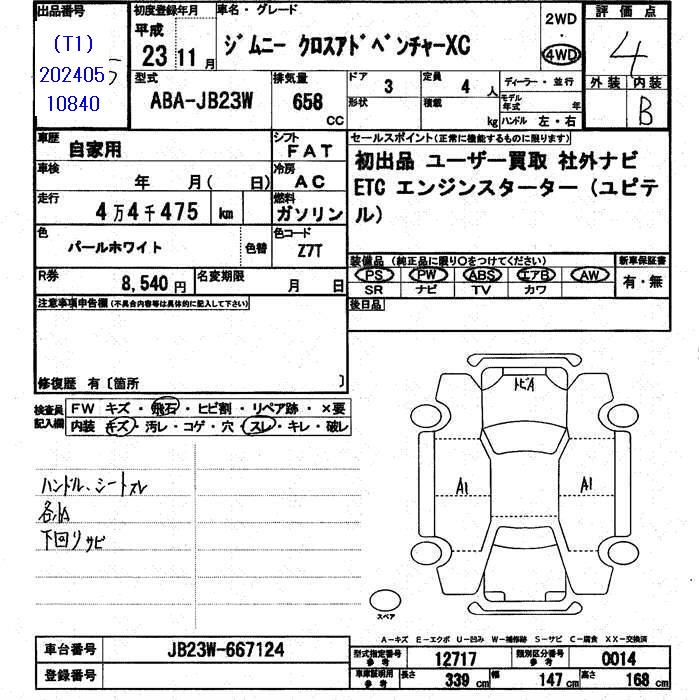 出品番号
(T1)
202405
10840
初度登録年月
平成
23 11 月
車名・グレード
ジムニー クロスアドベンチャーXC
2WD
・
4WD
評価点
4
外装 内装
B
型式
ABA-JB23W
排気量
658
cc
ドア
3
定員
4 人
形状
積載
kg
ディーラー・並行
モデル年式 年
ハンドル 左・右
車歴
自家用
シフト
FAT
車検
年 月( 日)
冷房
AC
走行
4万4千475 km
燃料
ガソリン
色
パールホワイト
色替
色コード
Z7T
R券
8,540 円
名変期限
月 日
セールスポイント(正常に機能するものに限ります)
初出品 ユーザー買取 社外ナビ
ETC エンジンスターター(ユピテ
ル)
装備品(純正品に限り○をつけてください)
PS PW ABS エアB AW
SR ナビ TV カワ
新車保証書
有・無
後日品
注意事項申告欄(不具合内容等は具体的に記入して下さい)
修復歴 有〔箇所 〕
検査員
記入欄
FW キズ・飛石・ヒビ割・リペア跡・×要
内装 キズ・汚レ・コゲ・穴・スレ・キレ・破レ
ハンドル、シートスレ
各小A
下回りサビ
トビA
A1
A1
スペア
A-キズ E-エクボ U-凹み W-補修跡 S-サビ C-腐食 XX-交換済
車台番号
JB23W-667124
登録番号
型式指定番号
参考
12717
類別区分番号
参考
0014
車庫証明用
参考
長さ 339 cm 幅 147 cm 高さ 168 cm